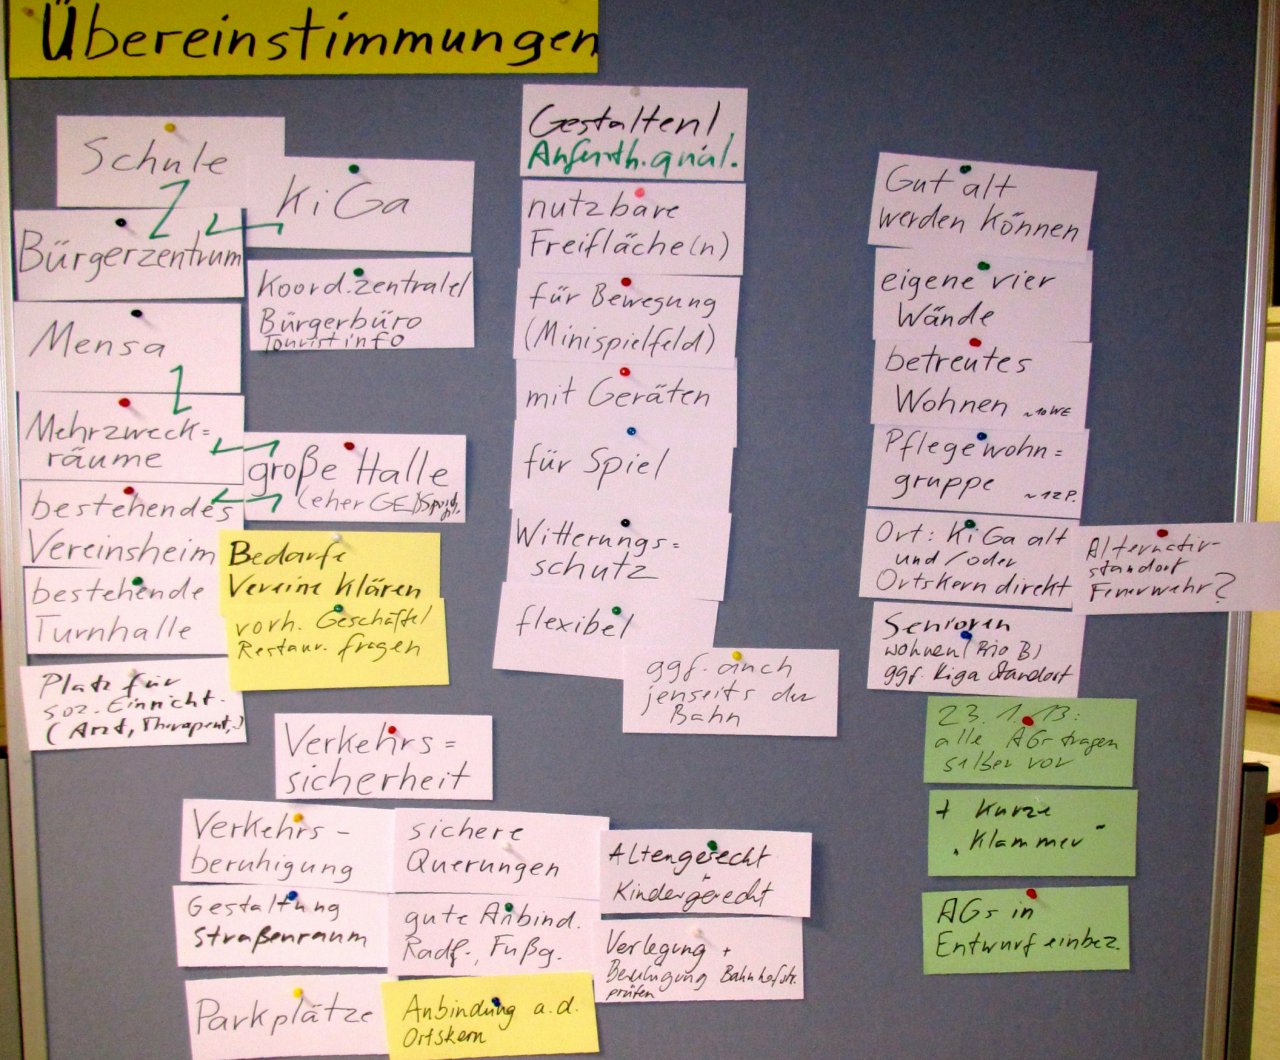 Übereinstimmungen
Schule
KiGa
Bürgerzentrum
Koord.zentrale/
Bürgerbüro
Touristinfo
Mensa
Mehrzweck=
räume
große Halle
(eher GE)
bestehendes
Vereinsheim
Bedarfe
Vereine klären
bestehende
Turnhalle
vorh. Geschäfte/
Restaur. fragen
Platz für
soz. Einricht.
(Arzt, Therapeut,.)
Gestalten!
Aufenth.qual.
nutzbare
Freifläche(n)
für Bewegung
(Minispielfeld)
mit Geräten
für Spiel
Witterungs=
schutz
flexibel
ggf. auch
jenseits der
Bahn
Gut alt
werden können
eigene vier
Wände
betreutes
Wohnen ~10WE
Pflegewohn=
gruppe ~12P.
Ort: KiGa alt
und/oder
Ortskern direkt
Alternativ-
standort
Feuerwehr?
Senioren
wohnen
ggf. Kiga Standort
23.1.13:
alle AGs tragen
selber vor
+ kurze
"Klammer"
AGs in
Entwurf einbez.
Verkehrs=
sicherheit
Verkehrs-
beruhigung
sichere
Querungen
Altengerecht
Kindergerecht
Gestaltung
Straßenraum
gute Anbind.
Radf., Fußg.
Verlegung +
Beruhigung Bahnhofstr.
prüfen
Parkplätze
Anbindung a.d.
Ortskern